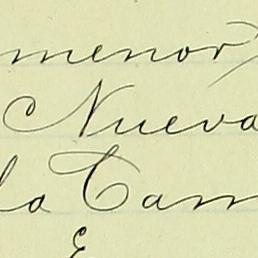 menor)
Nueva
la Cam
E